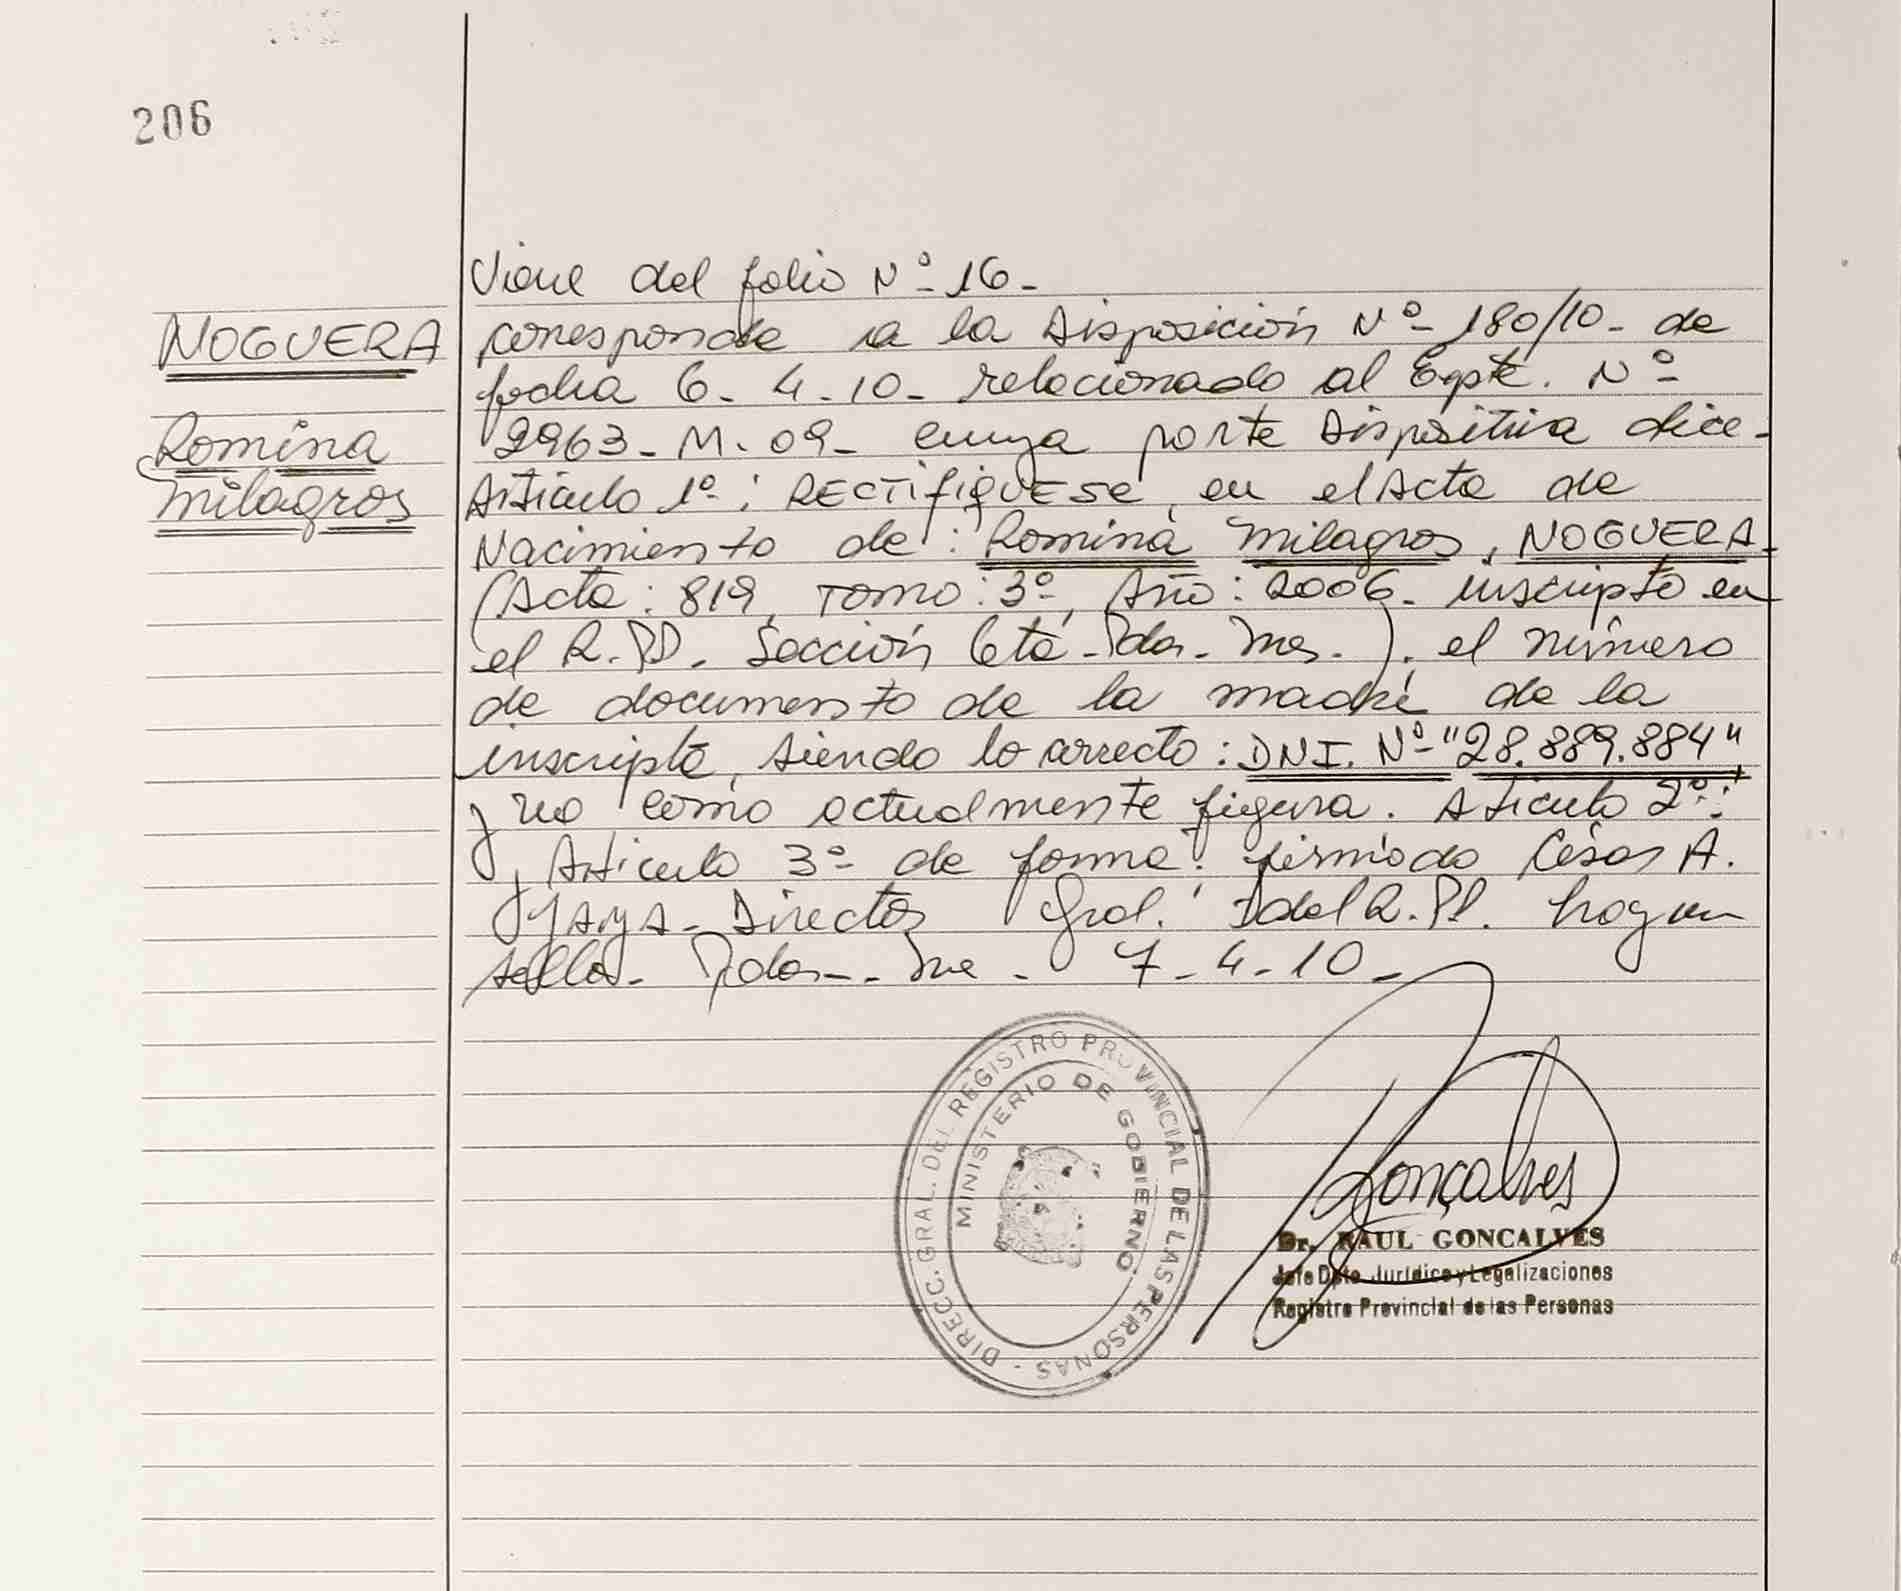 206
Viene del folio Nº 16-
NOGUERA
Romina
Milagros
corresponde a la Disposición Nº 180/10- de
fecha 6-4-10- relacionado al Expte. Nº
2963-M-09- cuya parte Dispositiva dice-
Articulo 1º: RECTIFIQUESE, en el Acta de
Nacimiento de: Romina Milagros, NOGUERA-
(Acta: 819, Tomo: 3º, Año: 2006- inscripto en
el R.P.P. Sección 6ta-Pdas-Mnes.). el número
de documento de la madre de la
inscripta, siendo lo correcto: DNI. Nº "28.889.884"
y no como actualmente figura. Articulo 2º:
y Articulo 3º de forma. firmado César A.
Director Gral. del R.P.P. hay un
sello- Pdas-Mnes- 7-4-10-
DIRECC. GRAL. DEL REGISTRO PROVINCIAL DE LAS PERSONAS -
MINISTERIO DE GOBIERNO
Gonçalves
Dr. RAUL GONCALVES
Jefe Dpto Jurídico y Legalizaciones
Registro Provincial de las Personas